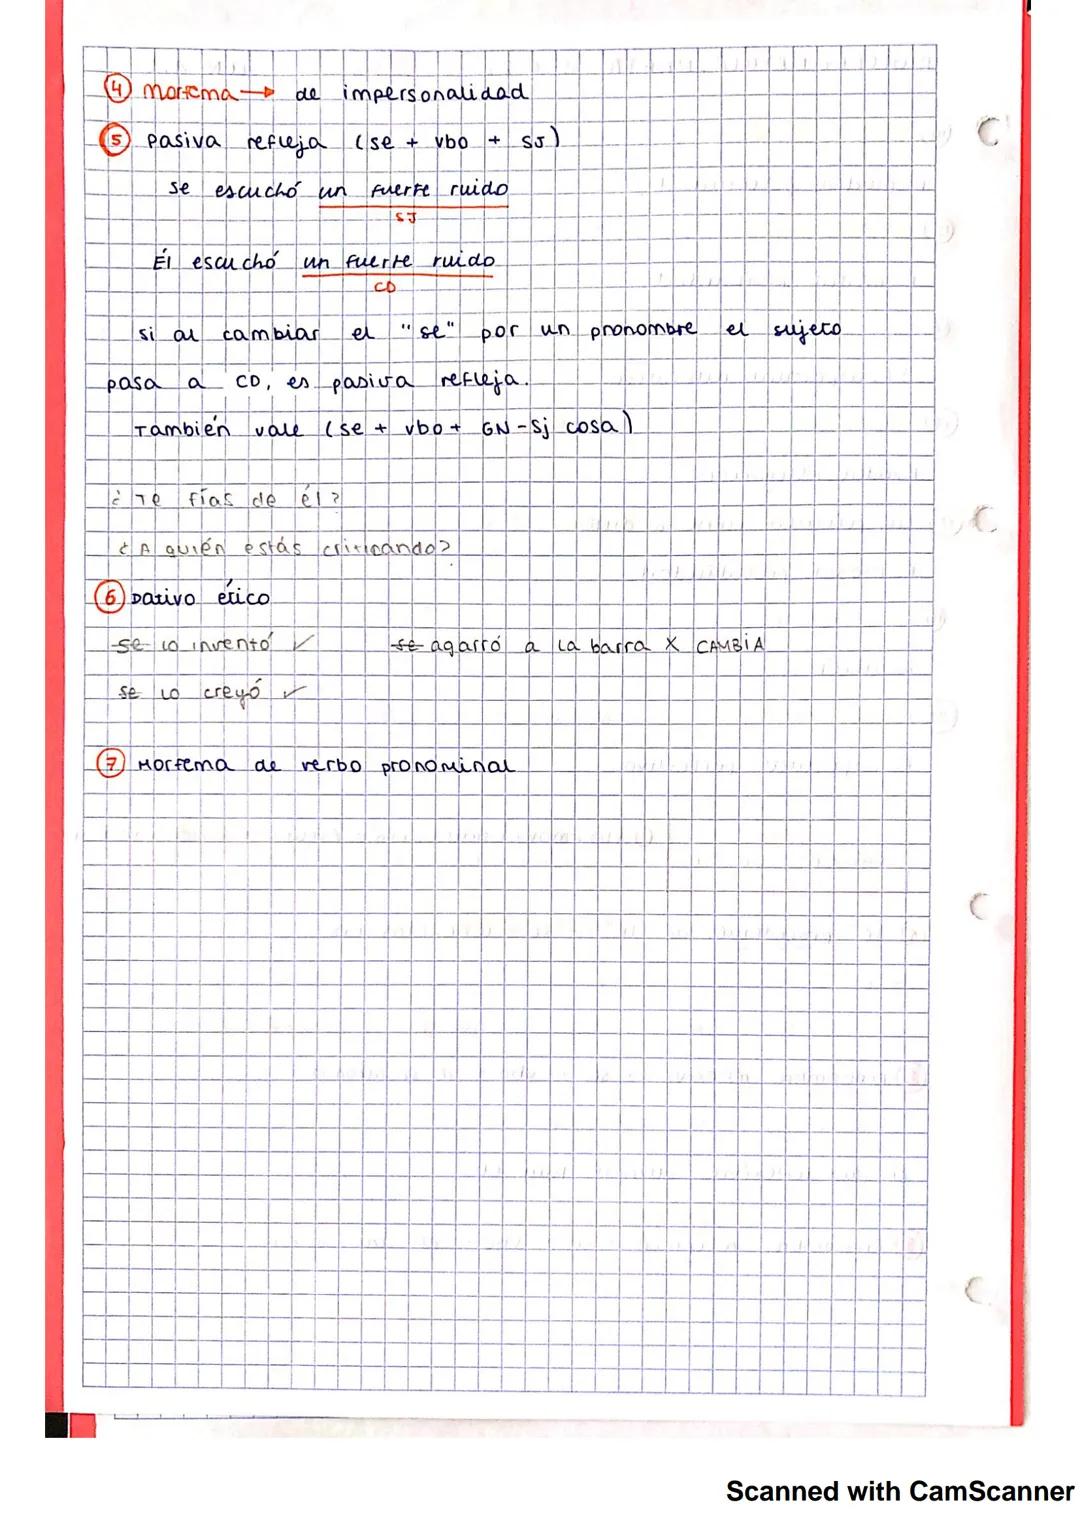 ④ Morfema → de impersonalidad
⑤ pasiva refleja (se + vbo + SJ)
se escuchó un fuerte ruido
SJ
Él escuchó un fuerte ruido
CD
si al cambiar el "se" por un pronombre el sujeto
pasa a CD, es pasiva refleja.
También vale (se + vbo + GN-Sj cosa)
¿Te fías de él?
¿A quién estás criticando?
⑥ Dativo ético
se lo inventó ✓ se agarró a la barra X CAMBIA
se lo creyó ✓
⑦ Morfema de verbo pronominal
Scanned with CamScanner